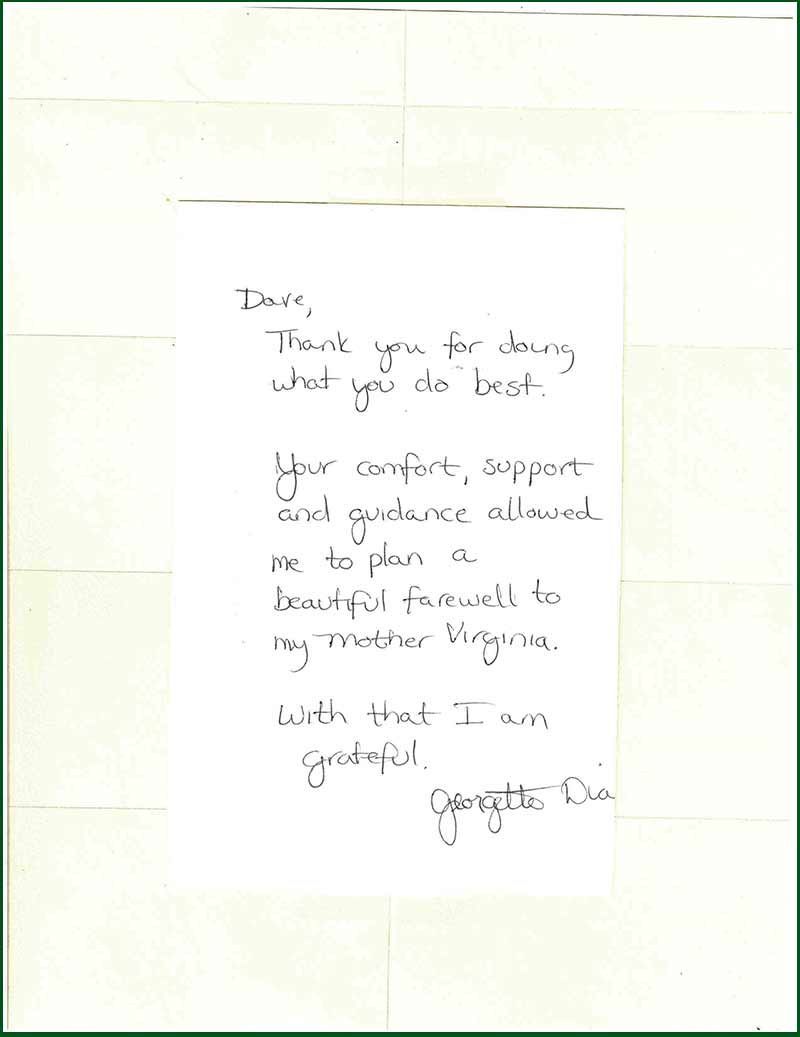 Dave,
Thank you for doing
what you do best.
Your comfort, support
and guidance allowed
me to plan a
beautiful farewell to
my mother Virginia.
With that I am
grateful.
Georgette Dia